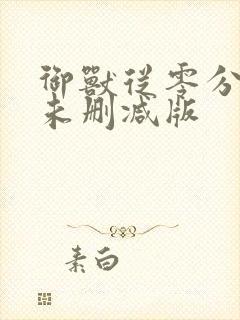 御獸從零分
未删减版
素白